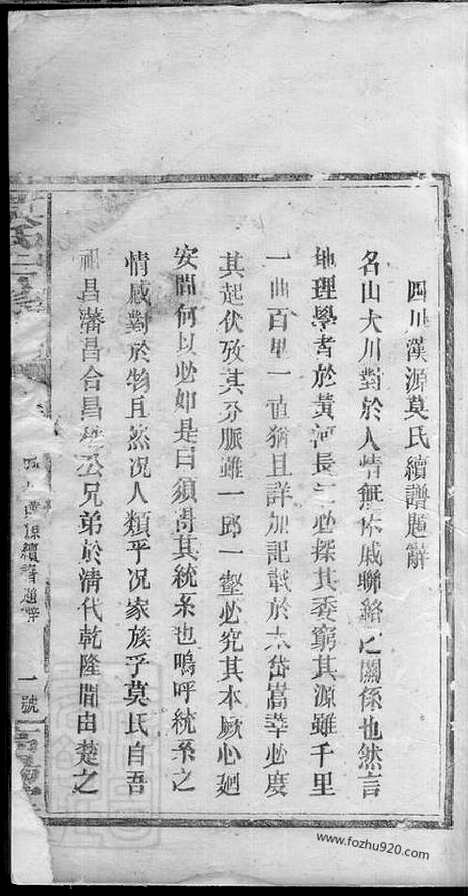 四川漢源莫氏續譜題辭
名山大川對於人情無休戚聯絡之關係也然言
地理學者於黃河長江必探其委窮其源雖千里
一曲百里一直猶且詳加記載於太岱嵩華必度
其起伏攷其分脈雖一邱一壑必究其本厥心廻
安間何以必如是曰須得其統系也嗚呼統系之
情感對於物且然况人類乎况家族乎莫氏自吾
祖昌瀋昌合昌公兄弟於清代乾隆間由楚之
續譜題辭
一號
www.fozhu920.com